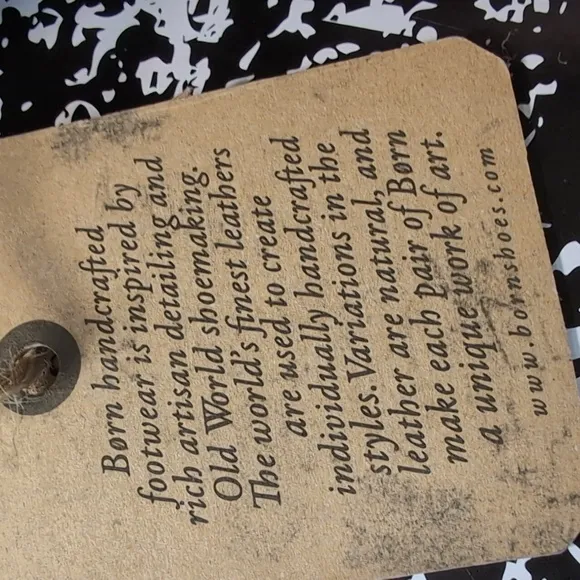 Børn handcrafted
footwear is inspired by
rich artisan detailing and
Old World shoemaking.
The world's finest leathers
are used to create
individually handcrafted
styles. Variations in the
leather are natural, and
make each pair of Børn
a unique work of art.
www.bornshoes.com